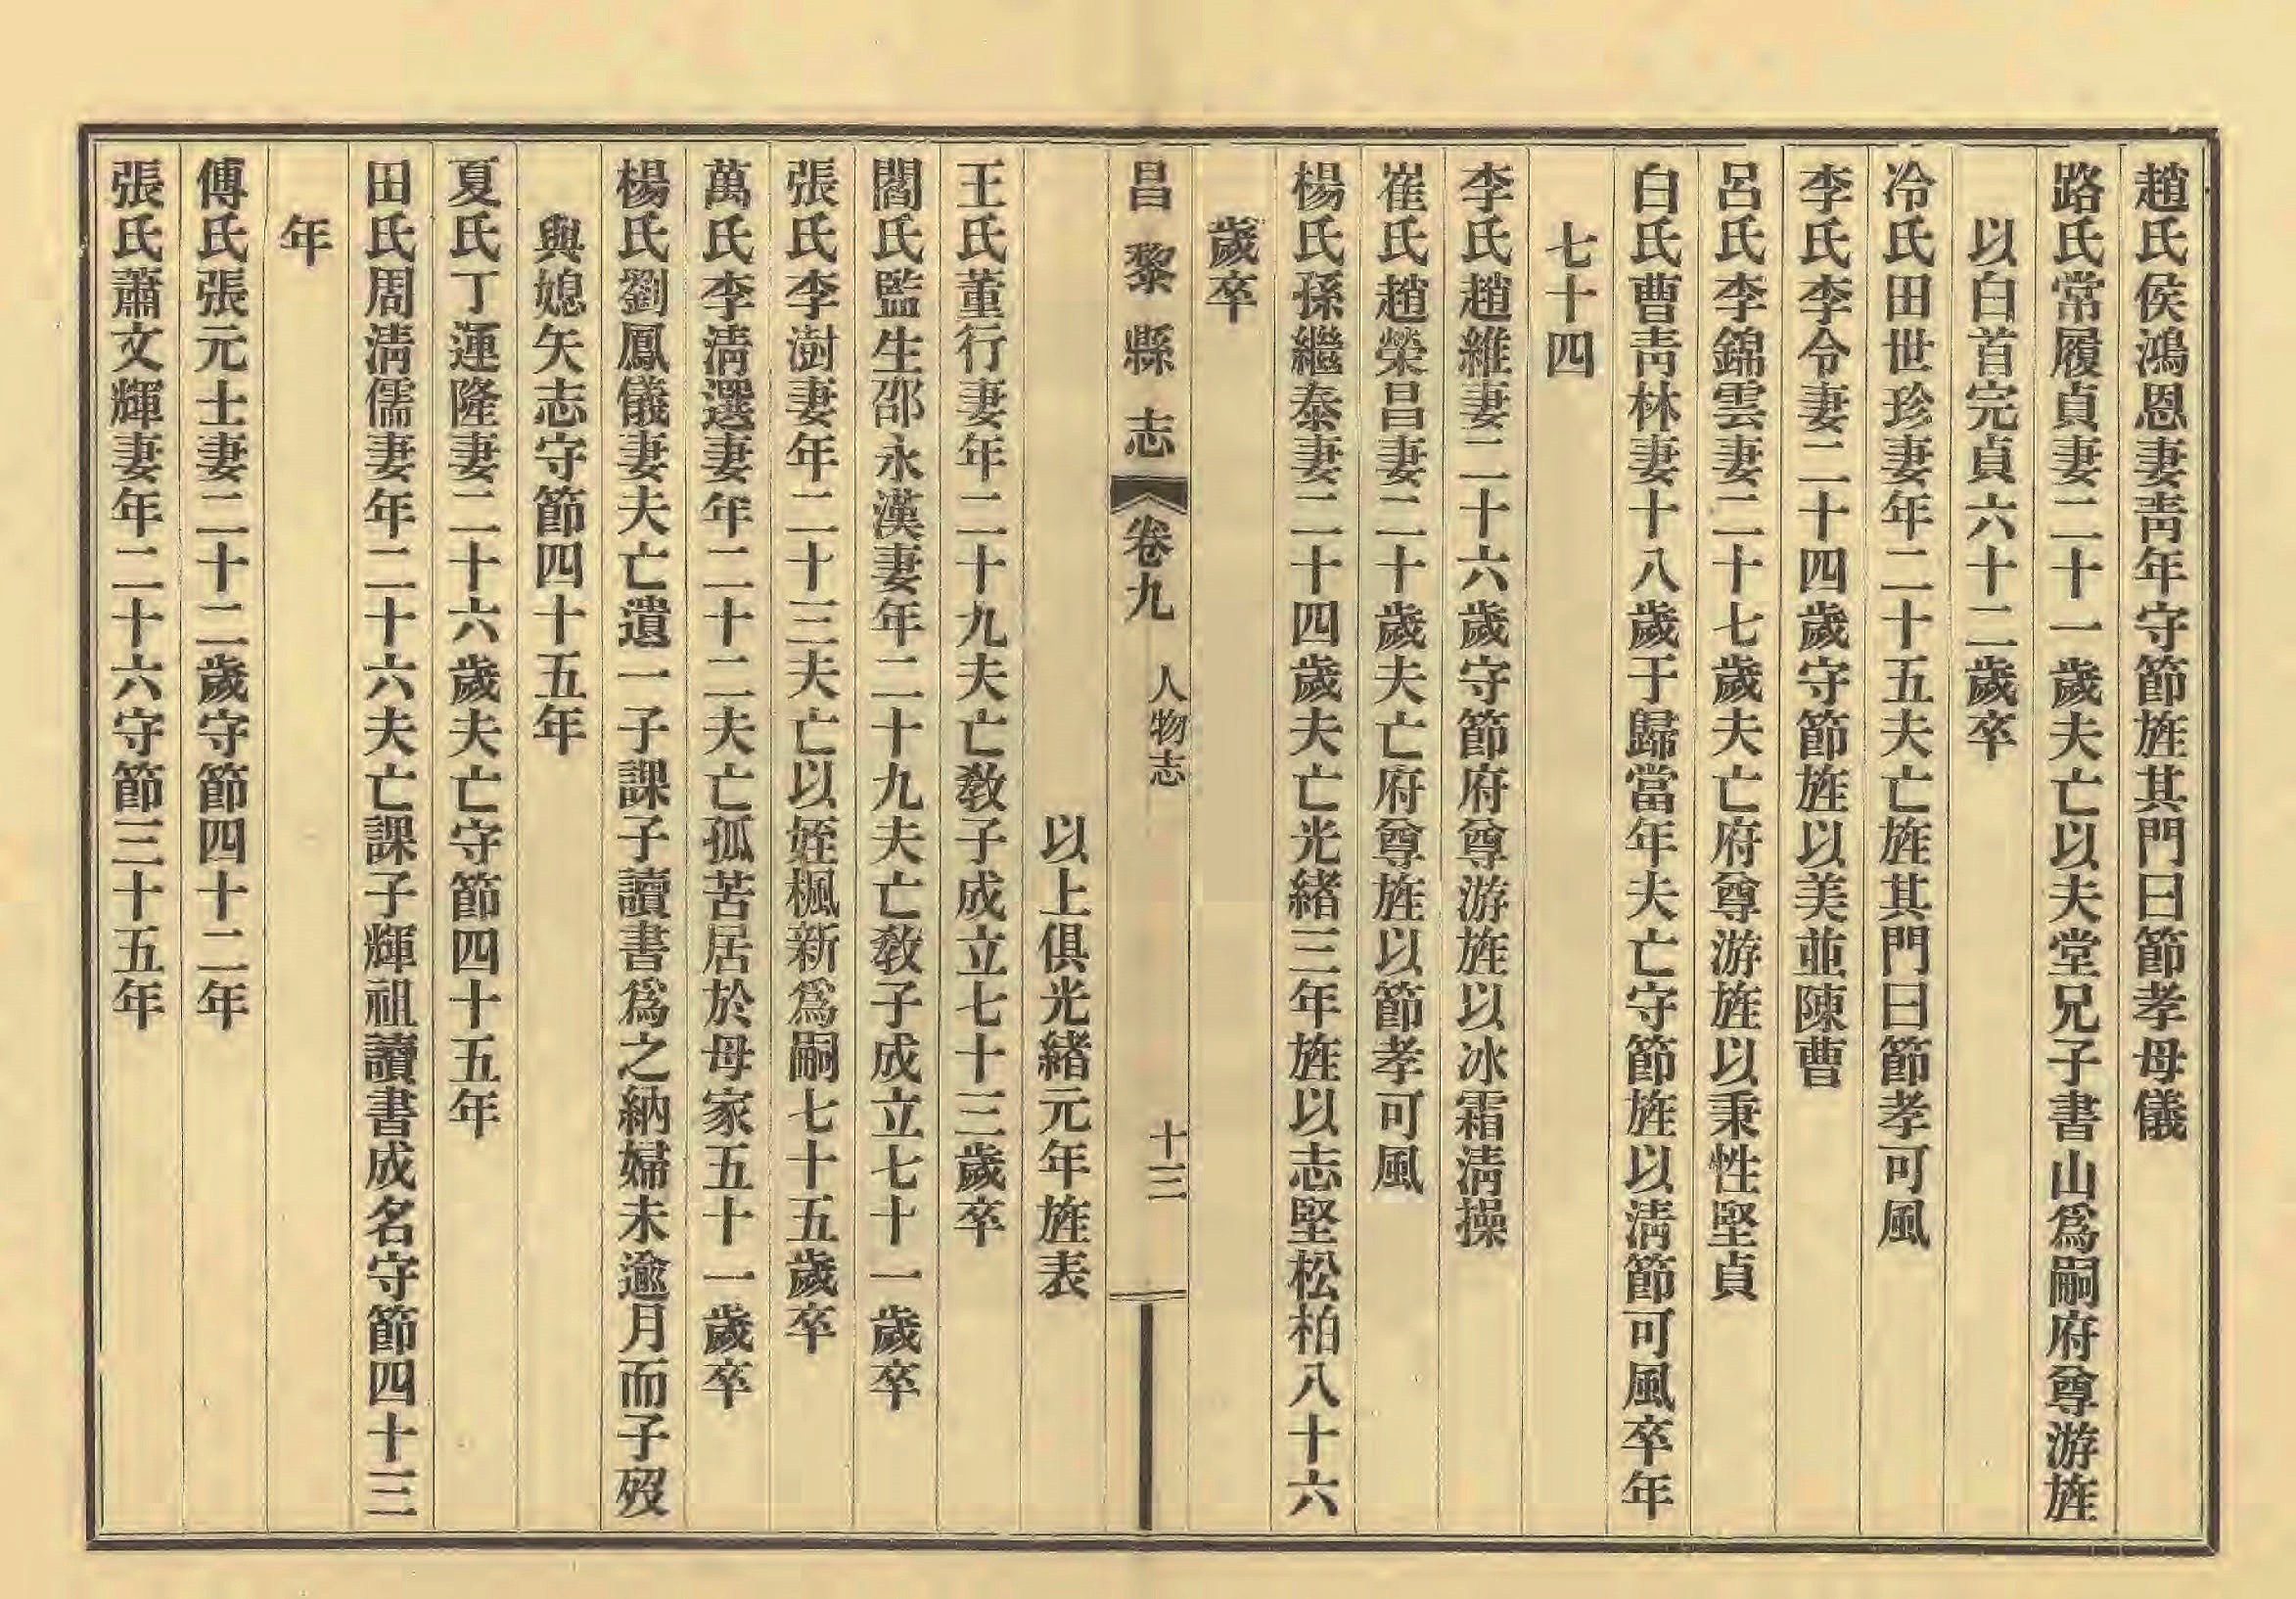 趙氏侯鴻恩妻靑年守節旌其門曰節孝母儀
路氏常履貞妻二十一歲夫亡以夫堂兄子書山爲嗣府尊游旌
以白首完貞六十二歲卒
冷氏田世珍妻年二十五夫亡旌其門曰節孝可風
李氏李令妻二十四歲守節旌以美並陳曹
呂氏李錦雲妻二十七歲夫亡府尊游旌以秉性堅貞
白氏曹靑林妻十八歲于歸當年夫亡守節旌以淸節可風卒年
七十四
李氏趙維妻二十六歲守節府尊游旌以冰霜淸操
崔氏趙榮昌妻二十歲夫亡府尊旌以節孝可風
楊氏孫繼泰妻二十四歲夫亡光緒三年旌以志堅松柏八十六
歲卒
昌黎縣志 卷九 人物志 十三
以上俱光緒元年旌表
王氏董行妻年二十九夫亡敎子成立七十三歲卒
閻氏監生邵永漢妻年二十九夫亡敎子成立七十一歲卒
張氏李澍妻年二十三夫亡以姪楓新爲嗣七十五歲卒
萬氏李淸選妻年二十二夫亡孤苦居於母家五十一歲卒
楊氏劉鳳儀妻夫亡遺一子課子讀書爲之納婦未逾月而子歿
與媳矢志守節四十五年
夏氏丁運隆妻二十六歲夫亡守節四十五年
田氏周淸儒妻年二十六夫亡課子輝祖讀書成名守節四十三
年
傅氏張元士妻二十二歲守節四十二年
張氏蕭文輝妻年二十六守節三十五年